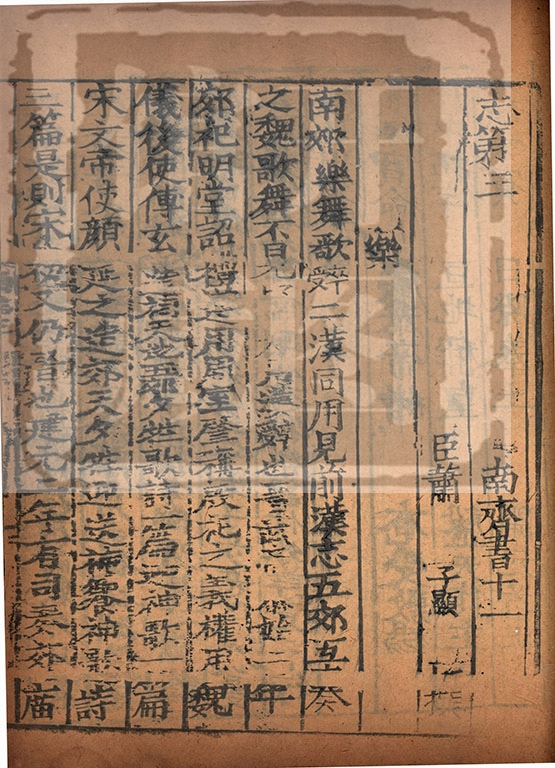 志第三 南齊書十一
臣蕭 子顯 撰
樂
南郊樂舞歌辤二漢同用見前漢志五郊互奏
之魏歌舞不見 是用漢辭也晉武 泰始二年
郊祀明堂詔禮遵用周室肇稱殷祀之義權用魏
儀後使傅玄造祠天地五郊夕牲歌詩一篇迎神歌一篇
宋文帝使顏延之造郊天夕牲迎送神饗神歌詩
三篇是則宋初又仍晉也建元二年有司奏郊廟